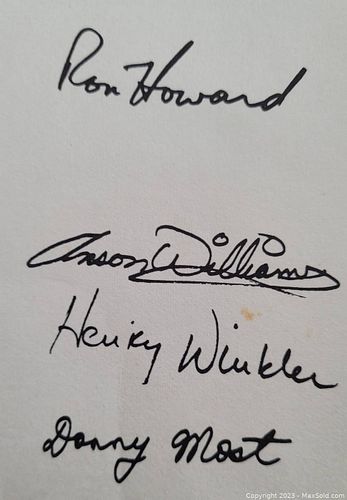 Ron Howard
Anson Williams
Henry Winkler
Donny Most
Copyright 2023 - MaxSold.com